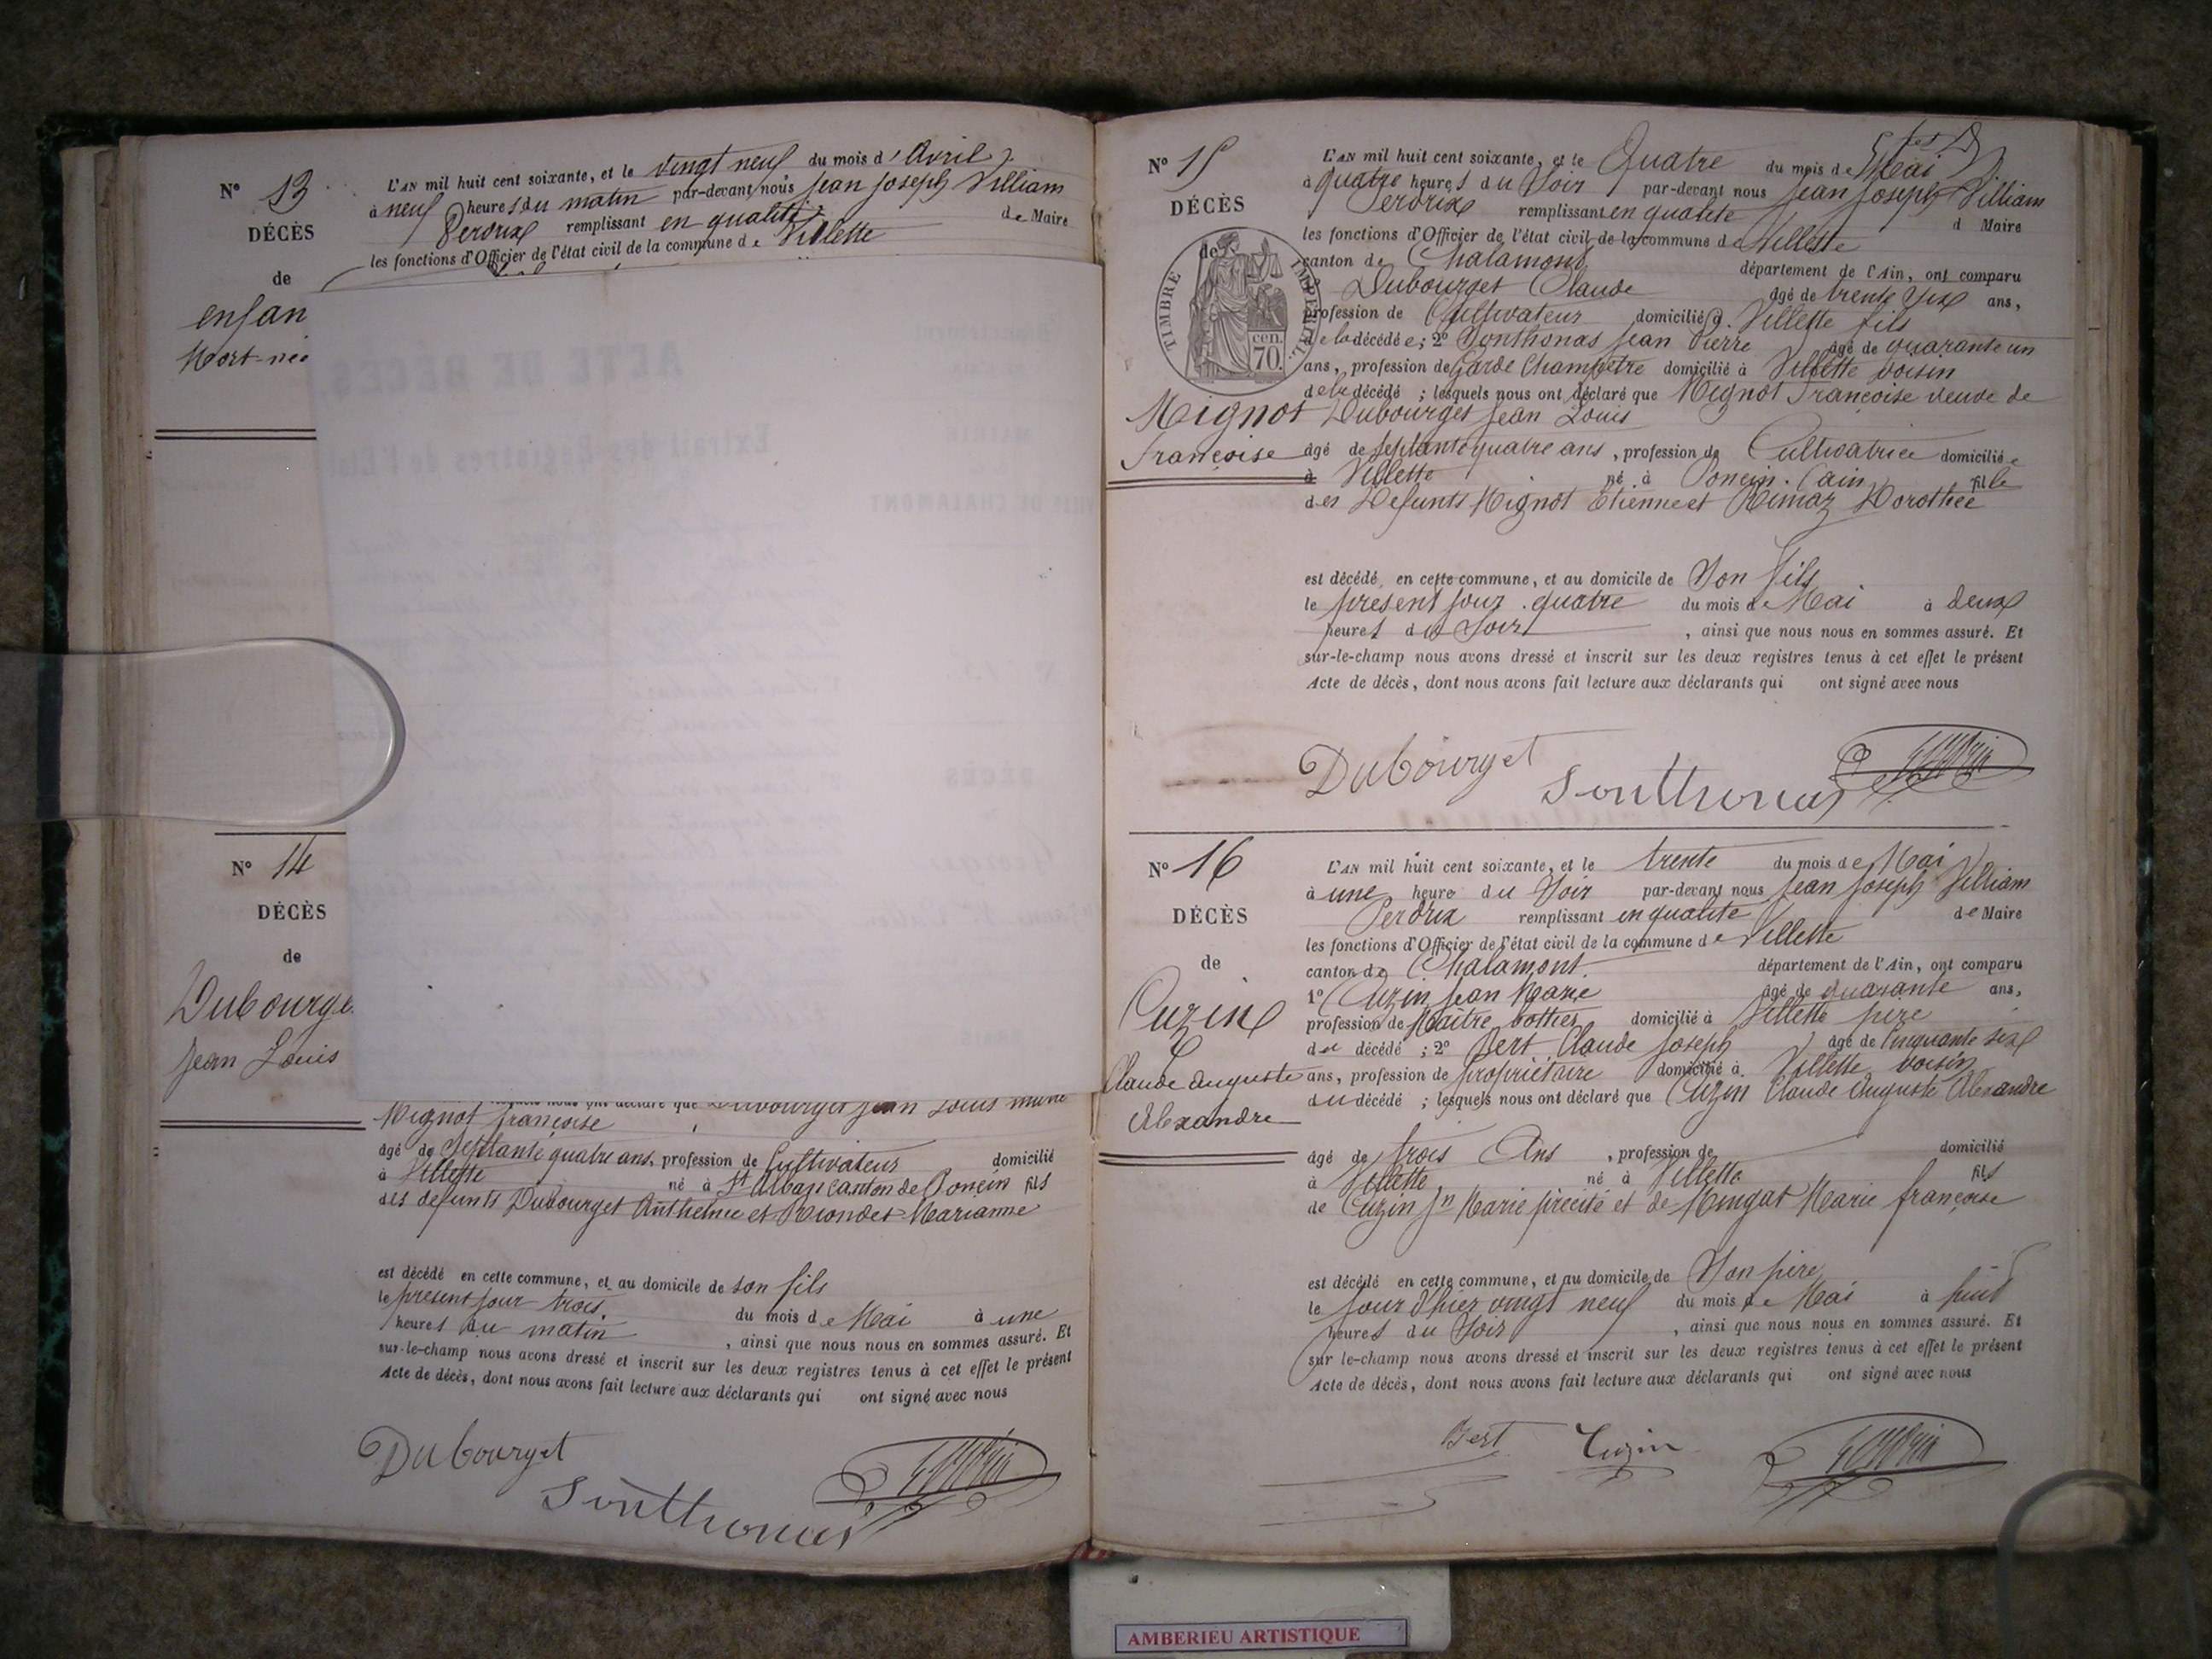 N° 13
DÉCÈS
de
enfan
Mort-née
L'AN mil huit cent soixante, et le vingt neuf du mois d'Avril
à neuf heures du matin par-devant nous Jean Joseph Villiam
Perdrix remplissant en qualité de Maire
les fonctions d'Officier de l'état civil de la commune de Villette
N° 14
DÉCÈS
de
Dubourge
Jean Louis
déclaré que Dubourget Jean Louis
Mignot françoise
âgé de Septante quatre ans, profession de Cultivateur domicilié
à Villette né à St Alban canton de Poncin fils
des défunts Dubourget Anthelme et Riondet Marianne
est décédé en cette commune, et au domicile de son fils
le présent jour trois du mois de Mai à une
heures du matin, ainsi que nous nous en sommes assuré. Et
sur-le-champ nous avons dressé et inscrit sur les deux registres tenus à cet effet le présent
Acte de décès, dont nous avons fait lecture aux déclarants qui ont signé avec nous
Dubourget
Sonthonas
N° 15
DÉCÈS
de
Mignot
Françoise
TIMBRE IMPÉRIAL
70 cen.
L'AN mil huit cent soixante, et le Quatre du mois de Mai
à quatre heures du Soir par-devant nous Jean Joseph Villiam
Perdrix remplissant en qualité d Maire
les fonctions d'Officier de l'état civil de la commune de Villette
canton de Chalamont département de l'Ain, ont comparu
Dubourget Claude âgé de trente six ans,
profession de Cultivateur domicilié à Villette fils
de la décédée; 2° Sonthonas Jean Pierre âgé de quarante un
ans, profession de Garde Champêtre domicilié à Villette voisin
de la décédé; lesquels nous ont déclaré que Mignot Françoise veuve de
Dubourget Jean Louis
âgé de septante quatre ans, profession de Cultivatrice domiciliée
à Villette né à Poncin (ain) fille
des Défunts Mignot Etienne et Rimaz Dorothée
est décédé en cette commune, et au domicile de Son fils
le présent jour quatre du mois de Mai à deux
heures du Soir, ainsi que nous nous en sommes assuré. Et
sur-le-champ nous avons dressé et inscrit sur les deux registres tenus à cet effet le présent
Acte de décès, dont nous avons fait lecture aux déclarants qui ont signé avec nous
Dubourget
Sonthonas
N° 16
DÉCÈS
de
Cuzin
Claude Auguste
Alexandre
L'AN mil huit cent soixante, et le trente du mois de Mai
à une heure du Soir par-devant nous Jean Joseph Villiam
Perdrix remplissant en qualité de Maire
les fonctions d'Officier de l'état civil de la commune de Villette
canton de Chalamont département de l'Ain, ont comparu
1° Cuzin Jean Marie âgé de quarante ans,
profession de Maître bottier domicilié à Villette père
du décédé; 2° Bert Claude Joseph âgé de Cinquante six
ans, profession de propriétaire domicilié à Villette voisin
du décédé; lesquels nous ont déclaré que Cuzin Claude Auguste Alexandre
âgé de trois Ans, profession de domicilié
à Villette né à Villette fils
de Cuzin Jn Marie précité et de Mingat Marie françoise
est décédé en cette commune, et au domicile de Son père
le jour d'hier vingt neuf du mois de Mai à huit
heures du Soir, ainsi que nous nous en sommes assuré. Et
sur le-champ nous avons dressé et inscrit sur les deux registres tenus à cet effet le présent
Acte de décès, dont nous avons fait lecture aux déclarants qui ont signé avec nous
Bert Cuzin
AMBERIEU ARTISTIQUE